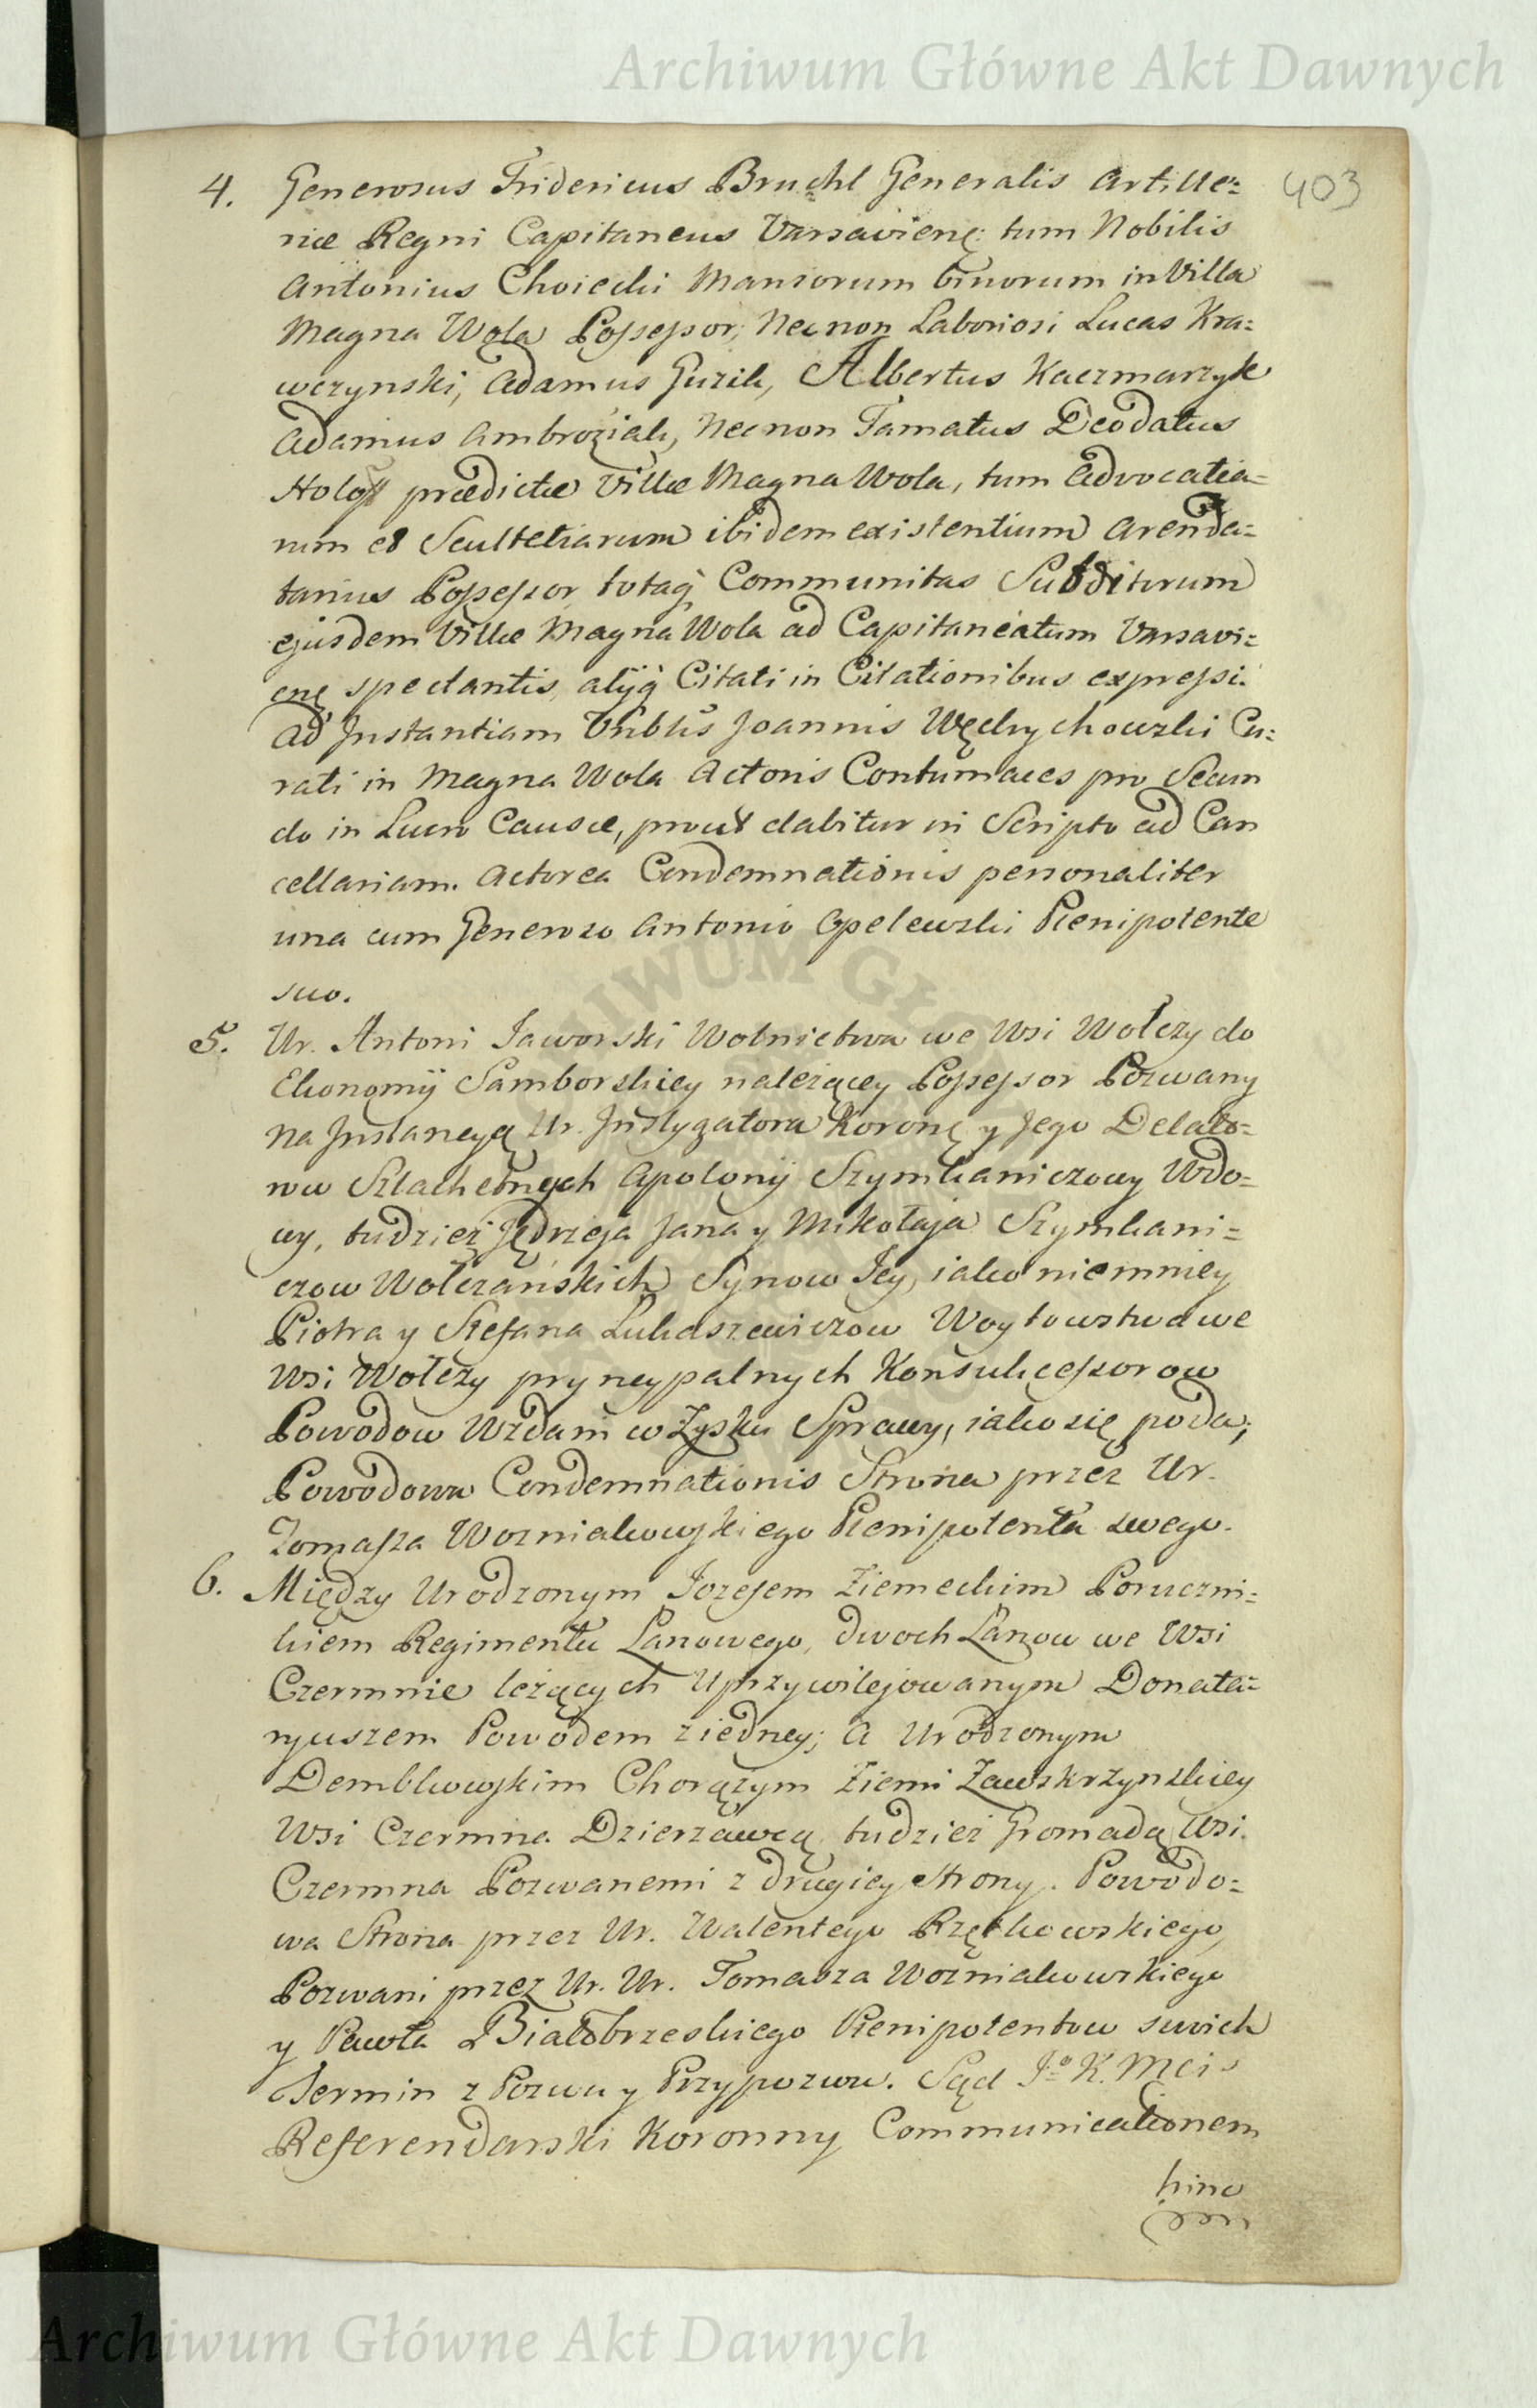 Archiwum Główne Akt Dawnych
403
4. Generosus Fridericus Bruchl Generalis Artille=
riæ Regni Capitaneus Varsavienę: tum Nobilis
Antonius Choiecki Mansorum binorum in Villa
Magna Wola Possessor, Necnon Laboriosi Lucas Kra=
wczynski, Adamus Guzik, Albertus Kaczmarzyk
Adamus Ambroziak, Necnon Famatus Deodatus
prædictæ Villæ Magna Wola, tum Advocatia=
rum et Scultetiarum ibidem existentium Arenda=
tarius Possessor, totaq́ Communitas Subditorum
ejusdem Villæ Magna Wola ad Capitaneatum Varsavi=
enę spectantis, alijq́ Citati in Citationibus expressi.
Ad Instantiam Vnblis Joannis Węchrychowski Cu=
rati in Magna Wola Actoris Contumaces pro Secun
do in Lucro Causæ, prout dabitur in Scripto ad Can
cellariam. Actorea Condemnationis personaliter
una cum Generoso Antonio Opelewski Plenipotente
suo.
5. Ur. Antoni Jaworski Wolnictwa we Wsi Wołczy do
Ekonomij Samborskiey należącey Possessor Pozwany
Na Instancyą Ur. Instygatora Koronę y Jego Delato=
row Szlachetnych Apolonij Szymkaniczowy Wdo=
wy, tudzież Jędrzeja Jana y Mikołaja Szymkani=
czow Wołczańskich Synow Jey, iako niemniey
Piotra y Stefana Lukaszewiczow Woytowstwa we
Wsi Wołczy pryncypalnych Konsukcessorow
Powodow Wzdani w Zysku Sprawy, iako się poda;
Powodowa Condemnationis Strona przez Ur.
Tomasza Wozniakowskiego Plenipotenta swego.
6. Między Urodzonym Jozefem Ziemeckim Poruczni=
kiem Regimentu Łanowego, dwoch Łanow we Wsi
Czermnie leżących Uprzywilejowanym Donata=
ryuszem Powodem z iedney; A Urodzonym
Dembkowskim Chorążym Ziemi Zawskrzynskiey
Wsi Czermna Dzierżawcą, tudzież Gromadą Wsi
Czermna Pozwanemi z drugiey strony. Powodo=
wa Strona przez Ur. Walentego Rzętkowskiego,
Pozwani przez Ur. Ur. Tomasza Wozniakowskiego
y Pawła Białobrzeskiego Plenipotentow swoich
Termin z Pozwu y Przypozwu. Sąd Jo K. Mci
Referendarski Koronny Communicationem
hinc
Archiwum Główne Akt Dawnych